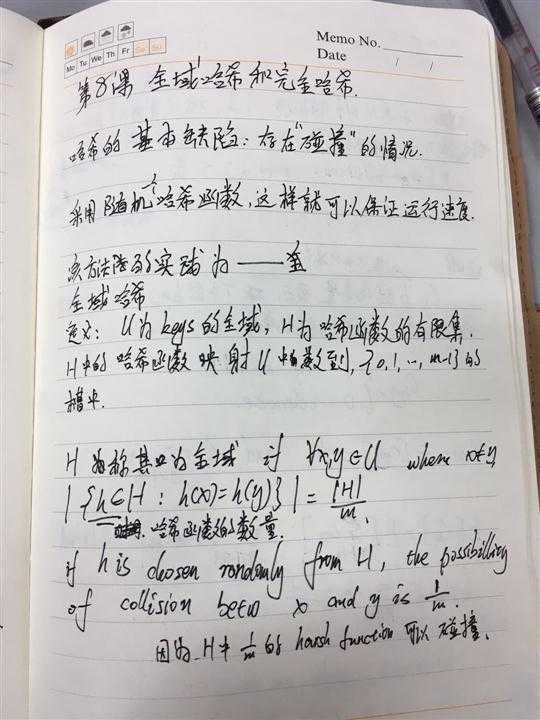 Memo No.
Mo Tu We Th Fr Sa Su
Date / /
第8课 全域哈希和完全哈希.
哈希的基本缺陷：存在"碰撞"的情况.
采用随机哈希函数，这样就可以保证运行速度.
该方法的实践为——全
全域哈希
定义： U为keys的全域，H为哈希函数的有限集.
H中的哈希函数映射U中的数到，{0,1,…,m-1}的
槽中.
H 称其为全域 if ∀x,y∈U where x≠y
|{h∈H : h(x)=h(y)}| = |H|/m.
哈希函数的数量.
if h is chosen randomly from H, the possibillity
of collision betw x and y is 1/m.
因为 H中 1/m 的 harsh function 可以碰撞.